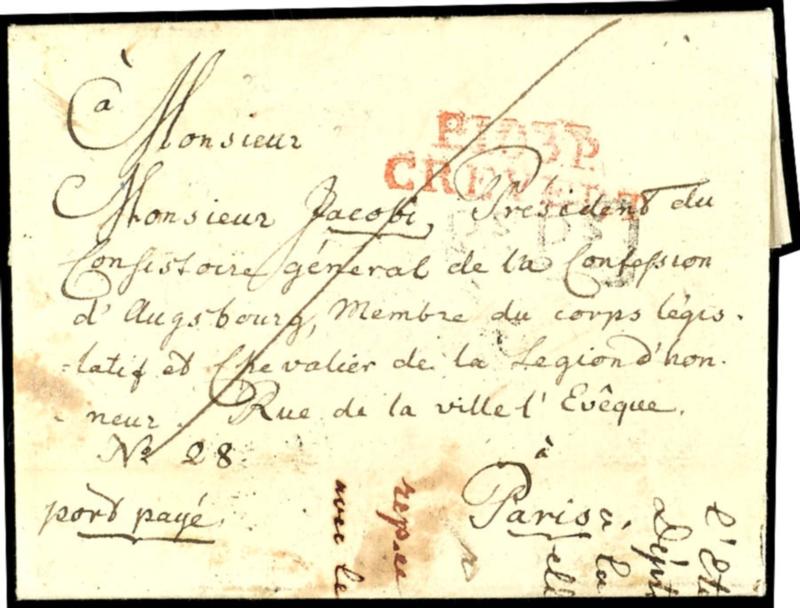 à
Monsieur
P103P.
CREVELT
Monsieur Jacobi, Président du
Consistoire général de la Confession
d'Augsbourg, Membre du corps légis-
-latif et Chevalier de la Legion d'hon-
-neur. Rue de la ville l'Evêque.
N° 28.
à
Paris.
port payé.
avec le
la